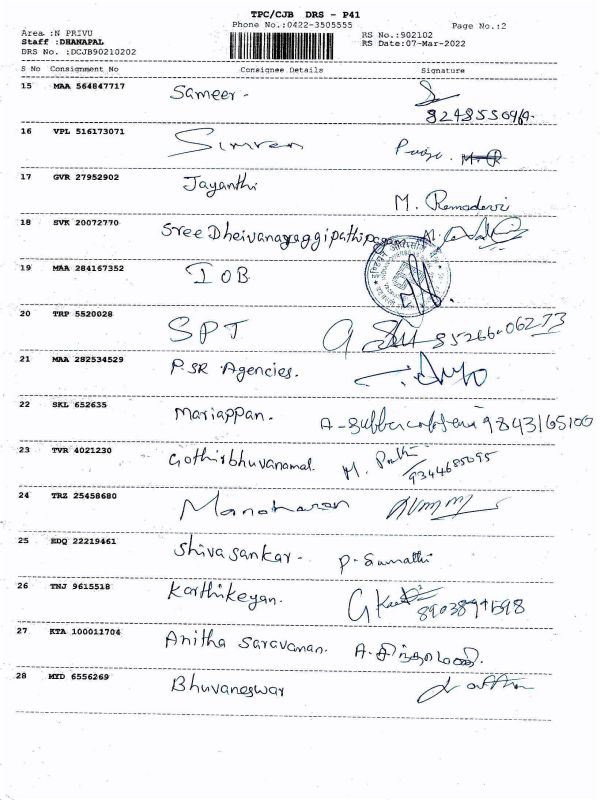 TPC/CJB DRS - P41
Phone No.:0422-3505555
Page No.:2
Area :N PRIVU
RS No.:902102
Staff :DHANAPAL
RS Date:07-Mar-2022
DRS No. :DCJB90210202
S No Consignment No Consignee Details Signature
15 MAA 564847717 Sameer.
16 VPL 516173071 Simran
17 GVR 27952902 Jayanthi M. Ramadevi
18 SVK 20072770
19 MAA 284167352 IOB
20 TRP 5520028 SPT 85266-06273
21 MAA 282534529 P.SR Agencies.
22 SKL 652635 Mariappan. 9843165100
23 TVR 4021230 M. 9344685095
24 TRZ 25458680 Manoharan
25 EDQ 22219461 Shivasankar. P. Sumathi
26 TNJ 9615518 Karthikeyan.
27 KTA 100011704 Anitha Saravanan.
28 MYD 6556269 Bhuvaneswar